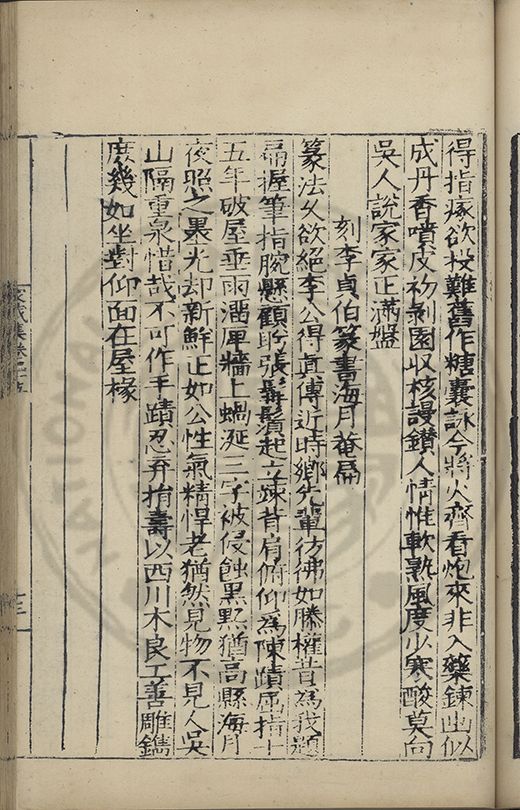 得指痕欲難舊作糖囊詠今將火齊看炮來非入藥鍊出似
成丹香噴皮初剥園収核謾鑽人情惟軟熟風度少寒酸莫向
吳人說家家正滿盤
刻李貞伯篆書海月菴扁
篆法久欲絕李公得真傳近時鄉先輩彷彿如滕權昔為我題
扁握筆指腕懸顧盻張鬚鬢起立踈背肩俯仰為陳蹟屈指十
五年破屋垂雨溜牆上蝸涎三字被侵蝕黑點猶高縣海月
夜照之墨光却新鮮正如公性氣精悍老猶然見物不見人吳
山隔重泉惜哉不可作手蹟忍弃捐壽以西川木良工善雕鐫
庶幾如坐對仰面在屋椽